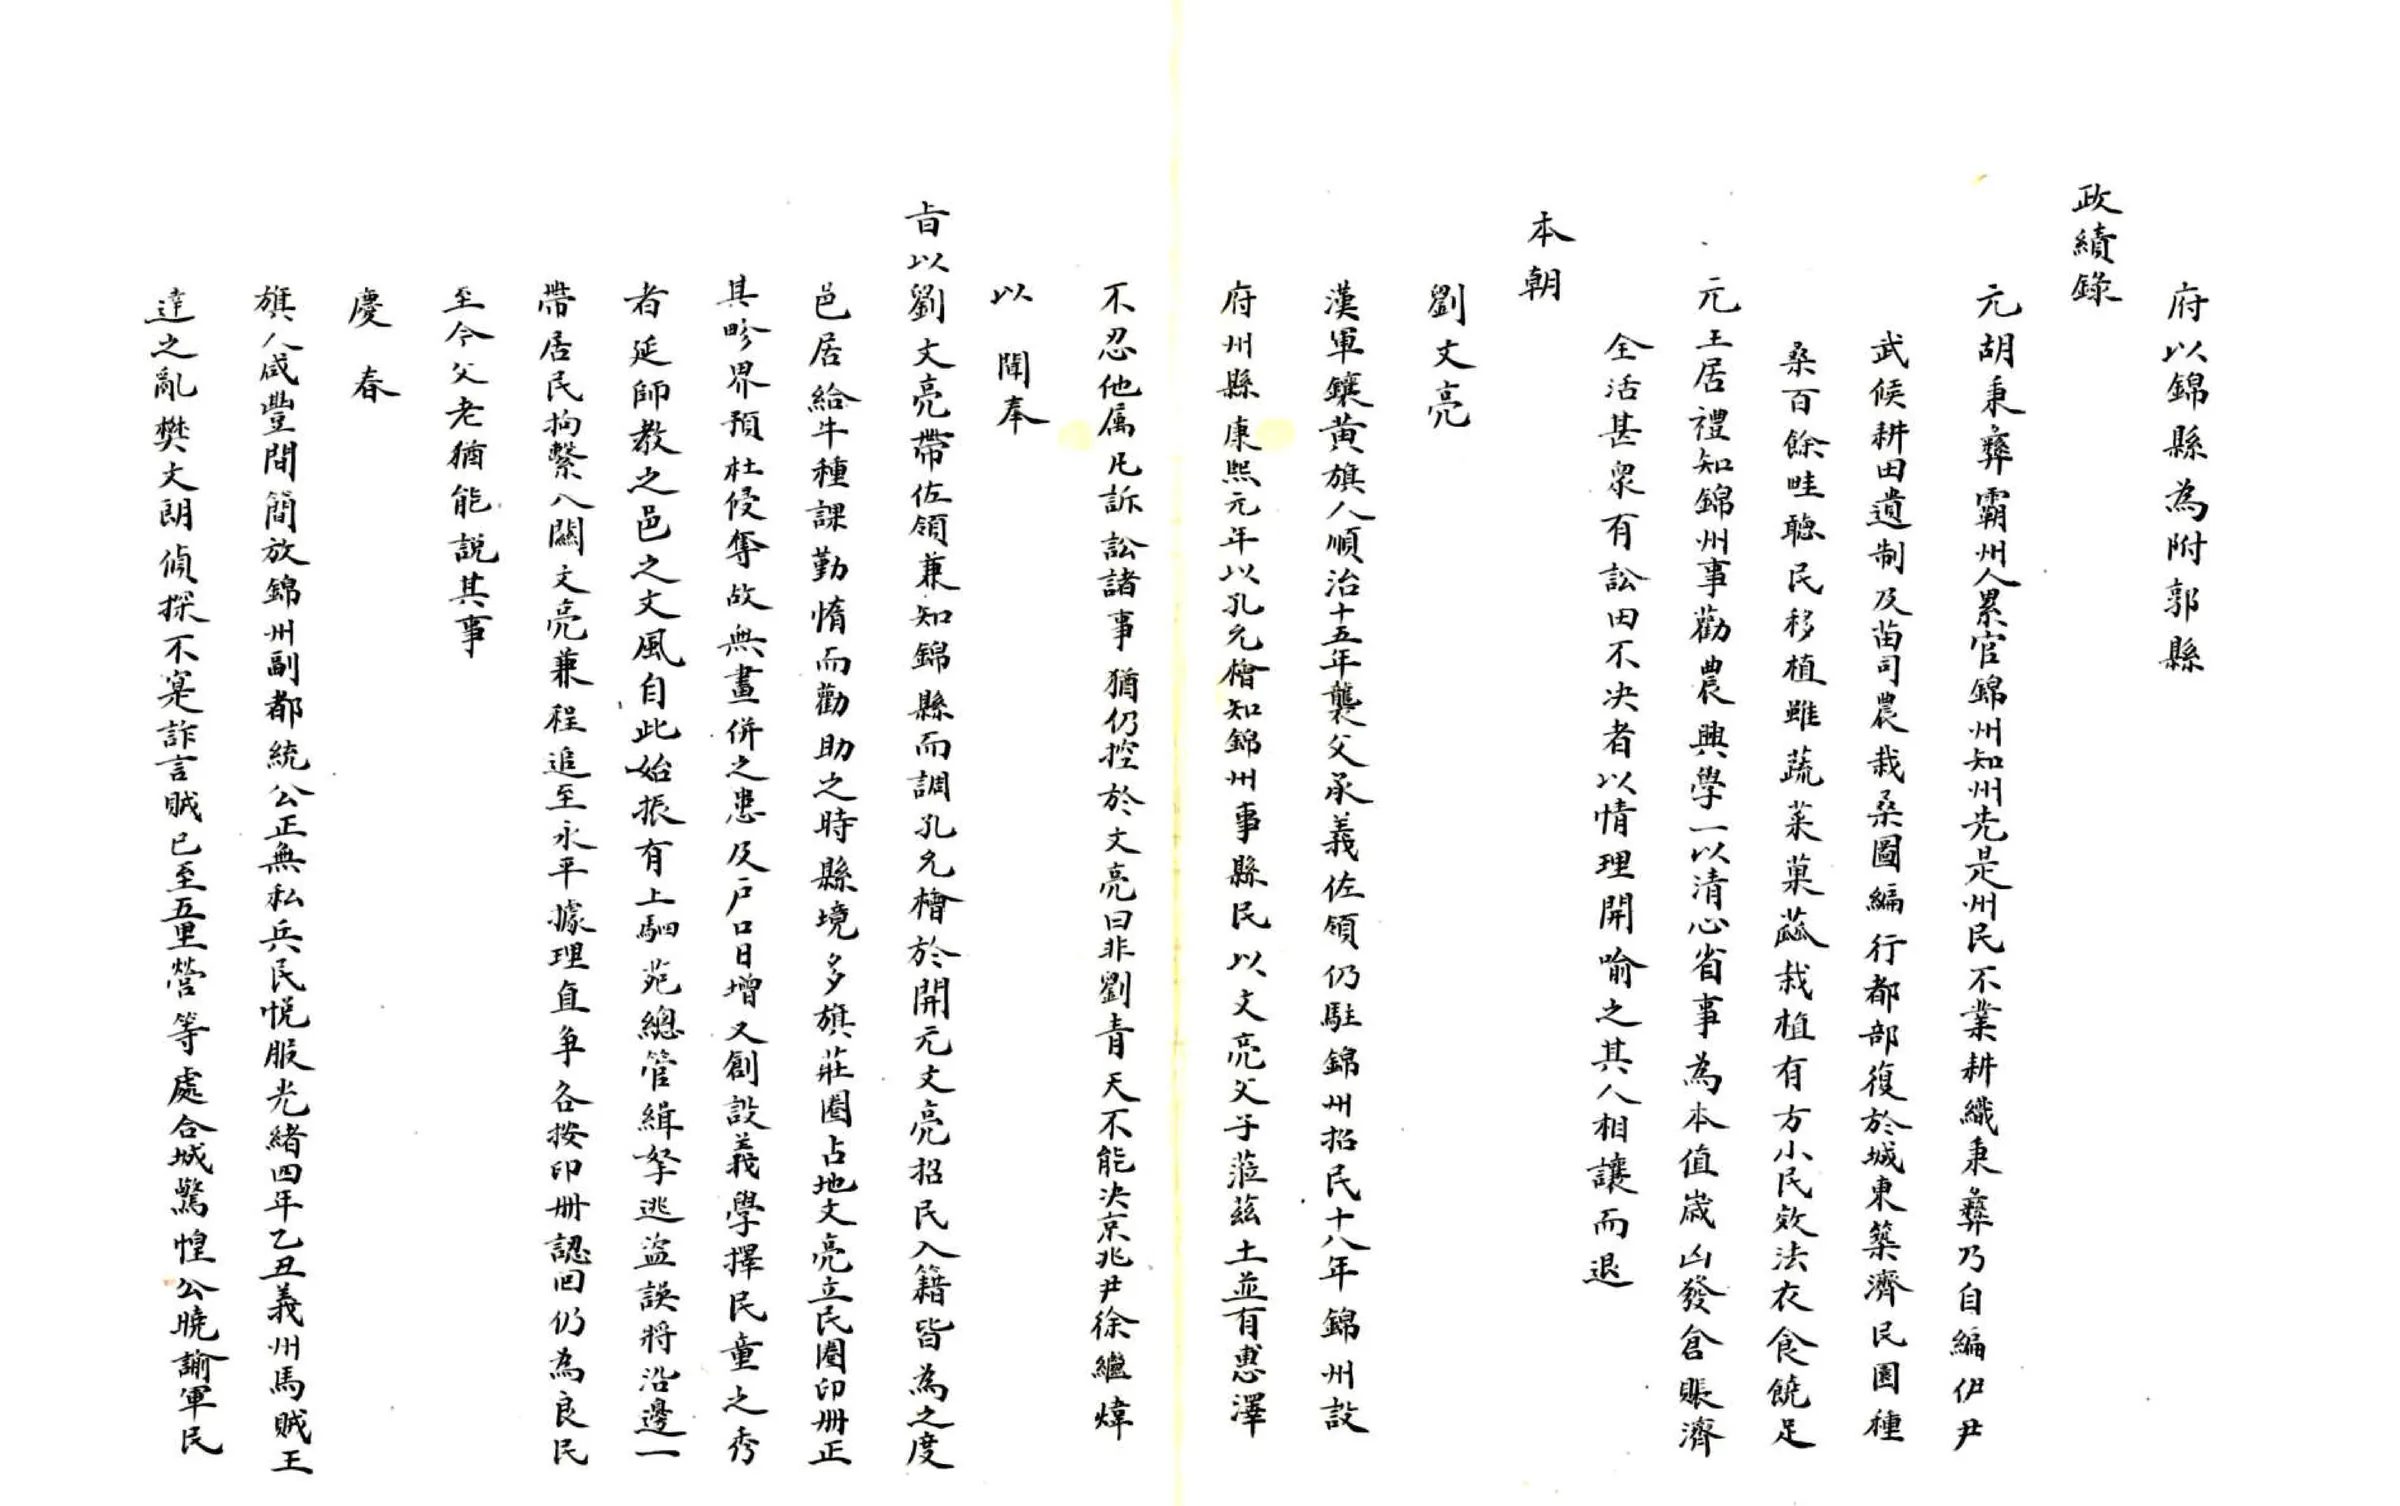 府以錦縣為附郭縣
政績錄
元胡秉彝霸州人累官錦州知州先是州民不業耕織秉彝乃自編伊尹
武候耕田遺制及苗司農栽桑圖編行都部復於城東築濟民園種
桑百餘畦聽民移植雖蔬菜菓蓏栽植有方小民效法衣食饒足
元王居禮知錦州事勸農興學一以清心省事為本值歲凶發倉賑濟
全活甚眾有訟田不决者以情理開喻之其人相讓而退
本朝
劉文亮
漢軍鑲黃旗人順治十五年襲父承義佐領仍駐錦州招民十八年錦州設
府州縣康熙元年以孔允檜知錦州事縣民以文亮父子蒞茲土並有惠澤
不忍他属凡訴訟諸事猶仍控於文亮曰非劉青天不能决京兆尹徐繼煒
以聞奉
旨以劉文亮帶佐領兼知錦縣而調孔允檜於開元文亮招民入籍皆為之度
邑居給牛種課勤惰而勸助之時縣境多旗莊圈占地文亮立民圈印册正
其畛界預杜侵奪故無畫併之患及戶口日增又創設義學擇民童之秀
者延師教之邑之文風自此始振有上駟苑總管緝拏逃盜誤將沿邊一
帶居民拘繫入關文亮兼程追至永平據理直爭各按印册認回仍為良民
至今父老猶能說其事
慶春
旗人咸豐間簡放錦州副都統公正無私兵民悅服光緒四年乙丑義州馬賊王
達之亂樊文朗偵探不寔詐言賊已至五里營等處合城驚惶公曉諭軍民